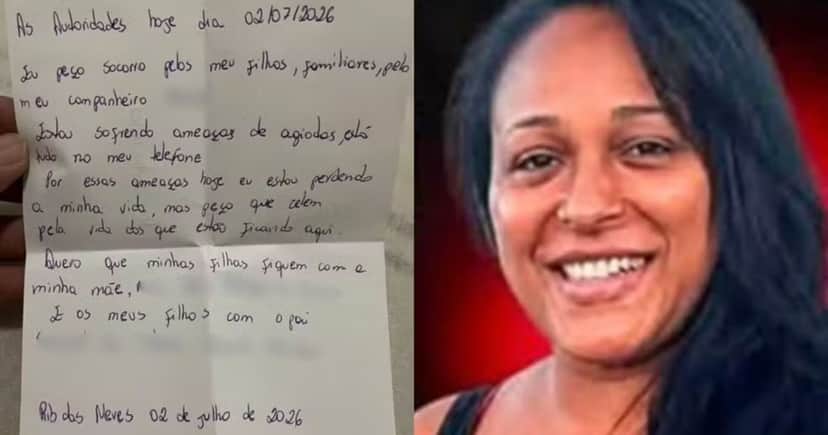 As Autoridades hoje dia 02/07/2026
Eu peço socorro pelos meu filhos, familiares, pelo
meu companheiro
Estou sofrendo ameaças de agiodas, está
tudo no meu telefone
Por essas ameaças hoje eu estou perdendo
a minha vida, mas peço que zelem
pela vida dos que estão ficando aqui.
Quero que minhas filhas fiquem com a
minha mãe,
E os meus filhos com o pai
Rib das Neves 02 de julho de 2026